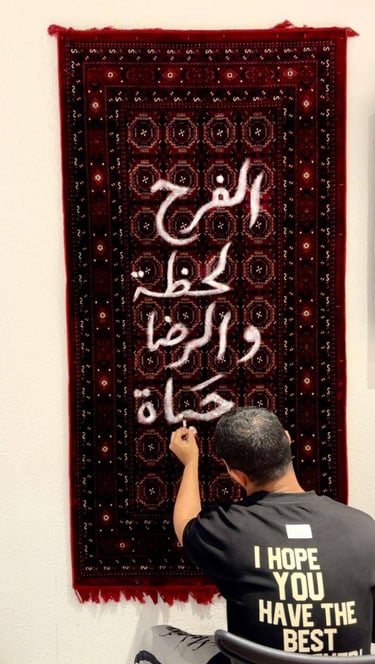 الفرح
لحظة
والرضا
حَياة
I HOPE
YOU
HAVE THE
BEST